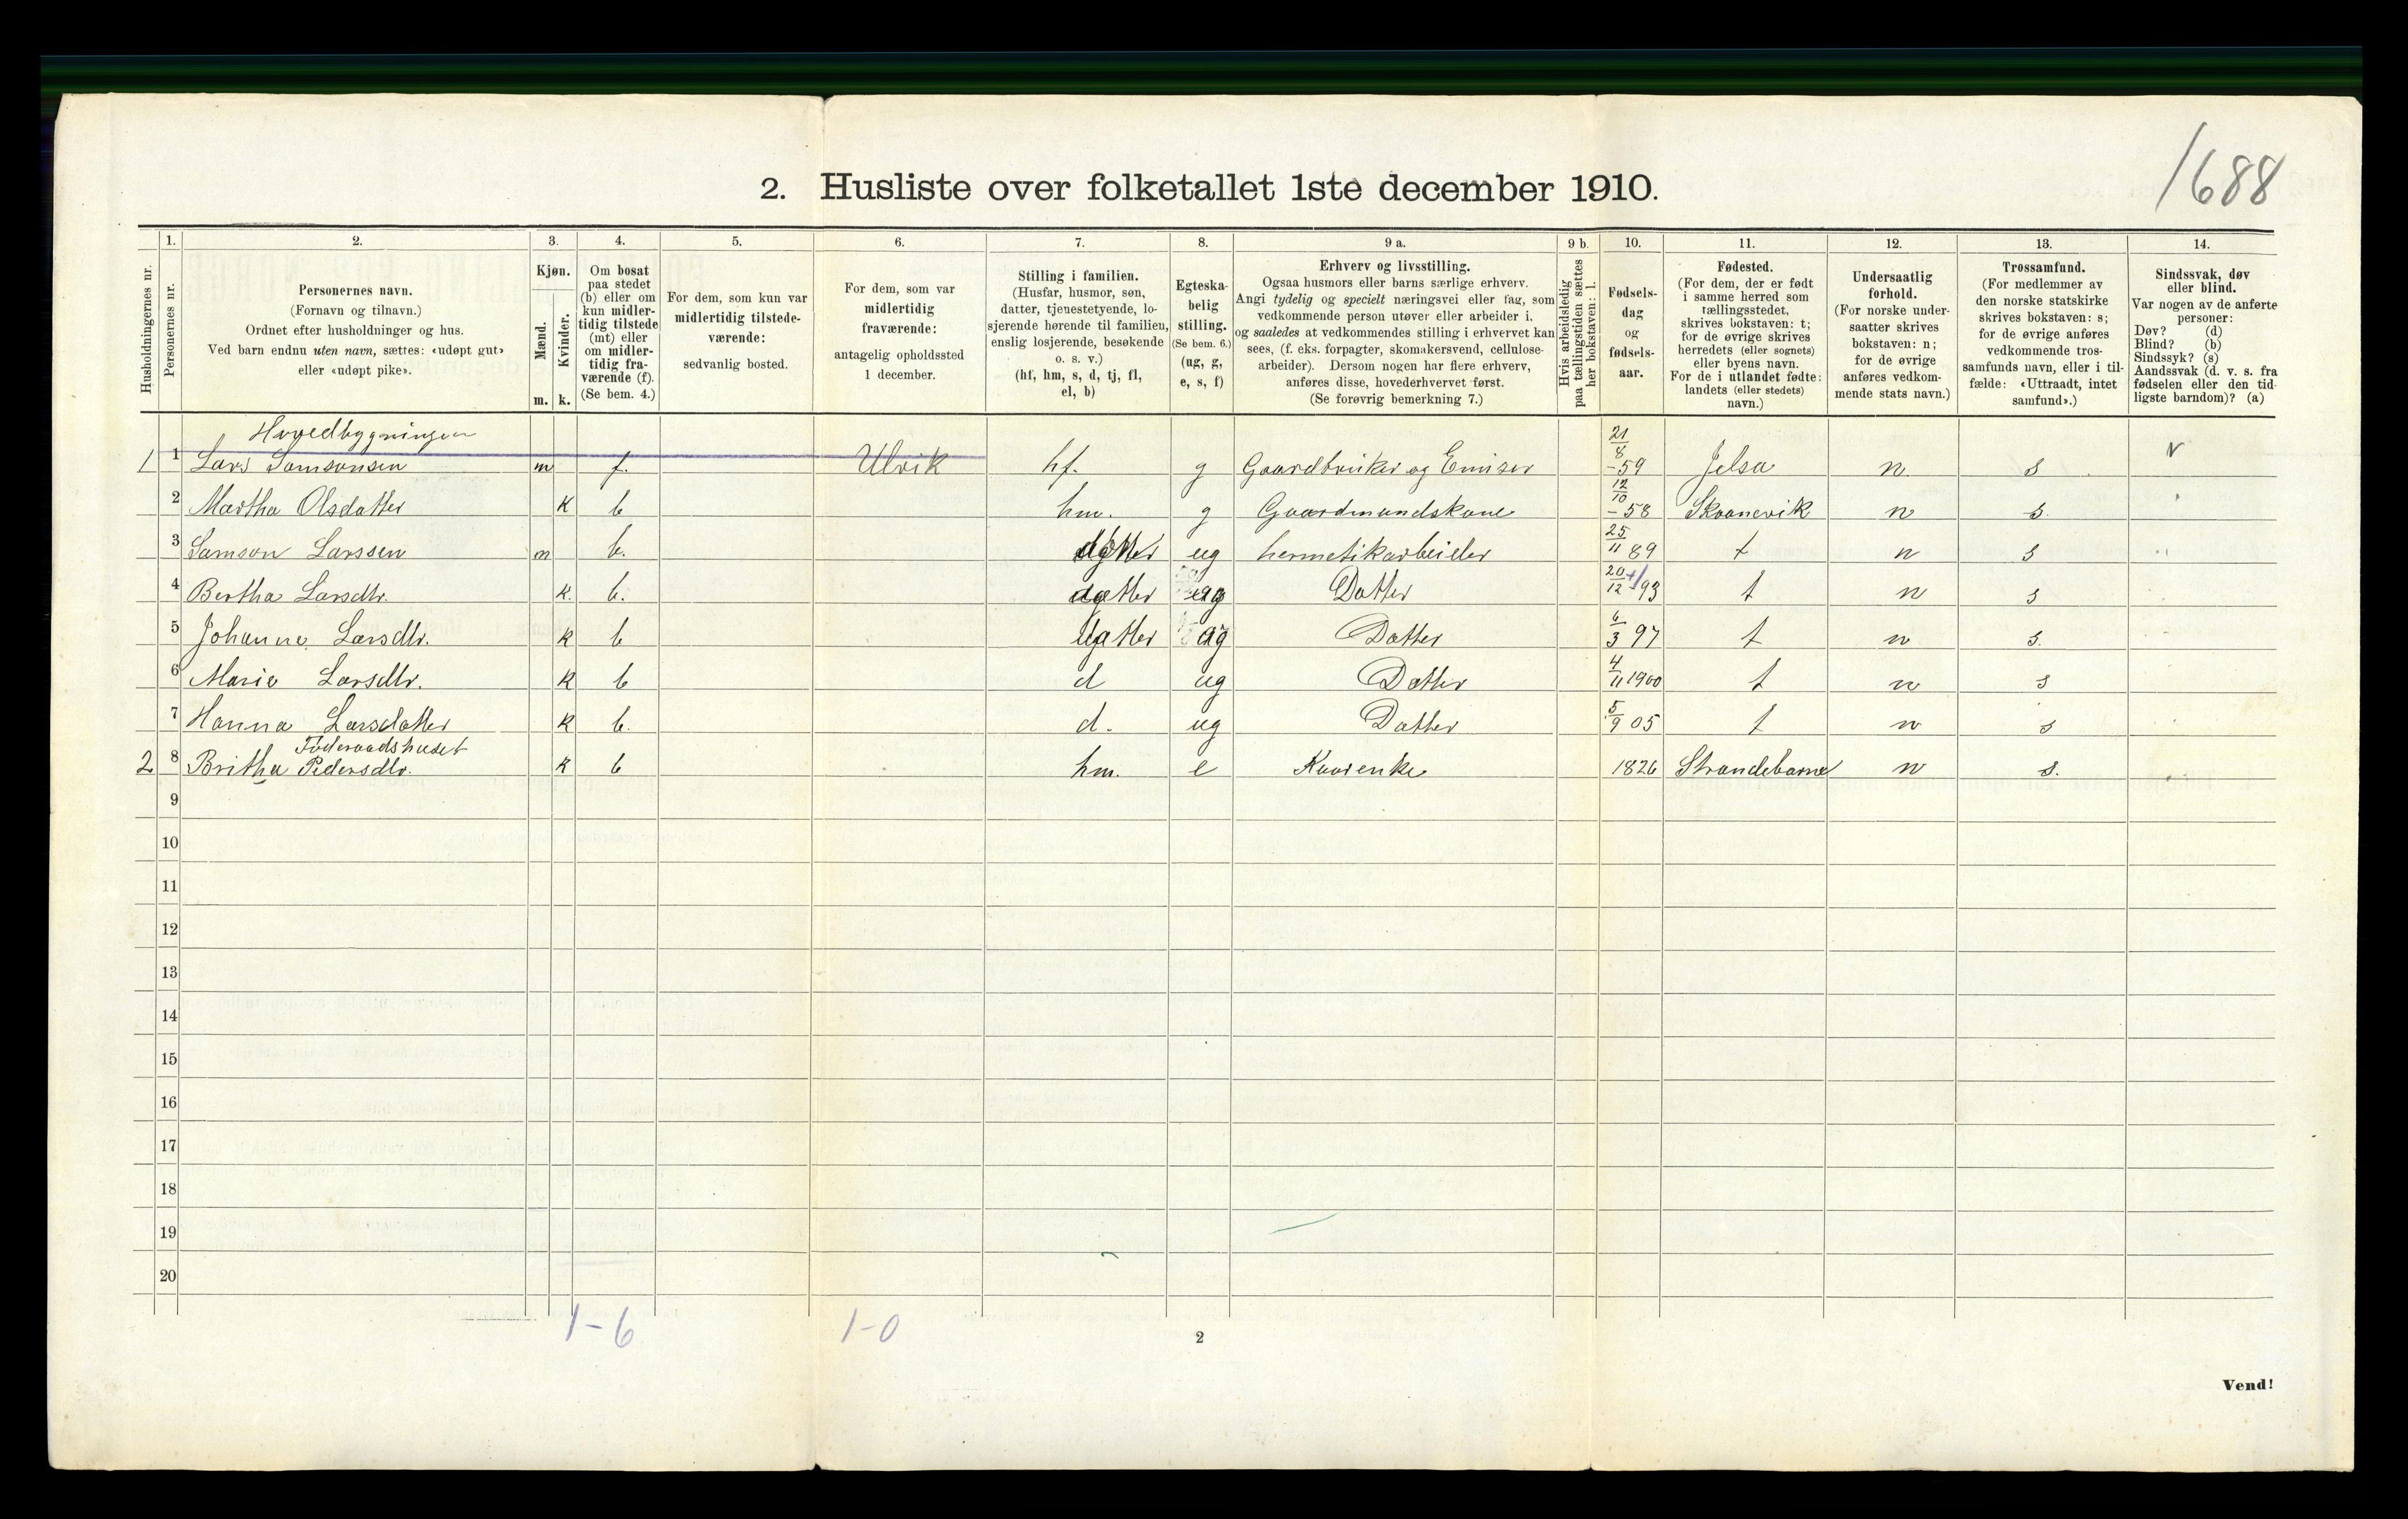 1688
2. Husliste over folketallet 1ste december 1910.
Husholdningernes nr.
1. Personernes nr.
2. Personernes navn.
(Fornavn og tilnavn.)
Ordnet efter husholdninger og hus.
Ved barn endnu uten navn, sættes: «udøpt gut»
eller «udøpt pike».
3. Kjøn.
Mænd. m.
Kvinder. k.
4. Om bosat
paa stedet
(b) eller om
kun midler-
tidig tilstede
(mt) eller
om midler-
tidig fra-
værende (f).
(Se bem. 4.)
5. For dem, som kun var
midlertidig tilstede-
værende:
sedvanlig bosted.
6. For dem, som var
midlertidig
fraværende:
antagelig opholdssted
1 december.
7. Stilling i familien.
(Husfar, husmor, søn,
datter, tjenestetyende, lo-
sjerende hørende til familien,
enslig losjerende, besøkende
o. s. v.)
(hf, hm, s, d, tj, fl,
el, b)
8. Egteska-
belig
stilling.
(Se bem. 6.)
(ug, g,
e, s, f)
9 a. Erhverv og livsstilling.
Ogsaa husmors eller barns særlige erhverv.
Angi tydelig og specielt næringsvei eller fag, som
vedkommende person utøver eller arbeider i.
og saaledes at vedkommendes stilling i erhvervet kan
sees, (f. eks. forpagter, skomakersvend, cellulose-
arbeider). Dersom nogen har flere erhverv,
anføres disse, hovederhvervet først.
(Se forøvrig bemerkning 7.)
9 b. Hvis arbeidsledig
paa tællingstiden sættes
her bokstaven: l.
10. Fødsels-
dag
og
fødsels-
aar.
11. Fødested.
(For dem, der er født
i samme herred som
tællingsstedet,
skrives bokstaven: t;
for de øvrige skrives
herredets (eller sognets)
eller byens navn.
For de i utlandet fødte:
landets (eller stedets)
navn.)
12. Undersaatlig
forhold.
(For norske under-
saatter skrives
bokstaven: n;
for de øvrige
anføres vedkom-
mende stats navn.)
13. Trossamfund.
(For medlemmer av
den norske statskirke
skrives bokstaven: s;
for de øvrige anføres
vedkommende tros-
samfunds navn, eller i til-
fælde: «Uttraadt, intet
samfund».)
14. Sindssvak, døv
eller blind.
Var nogen av de anførte
personer:
Døv? (d)
Blind? (b)
Sindssyk? (s)
Aandssvak (d. v. s. fra
fødselen eller den tid-
ligste barndom)? (a)
Hovedbygningen
1 1 Lars Samsonsen m f. Ulvik hf. g Gaardbruker og Emisær 21/8 -59 Jelsa n s
2 Martha Olsdatter k b hm. g Gaardmandskone 12/10 -58 Skaanevik n s.
3 Samson Larssen m b. ug hermetikarbeider 25/11 89 t n s
4 Bertha Larsdtr. k. b. datter ug Datter 20/12 93 t n s
5 Johanne Larsdtr. k b datter ug Datter 6/3 97 t n s.
6 Marie Larsdtr. k b d ug Datter 4/11 1900 t n s
7 Hanna Larsdatter k b. d. ug Datter 5/9 05 t n s
Føderaadshuset
2 8 Britha Pedersdtr. k b hm. e Kaarenke 1826 Strandebarm n s.
9
10
11
12
13
14
15
16
17
18
19
20
1-6 1-0
2
Vend!